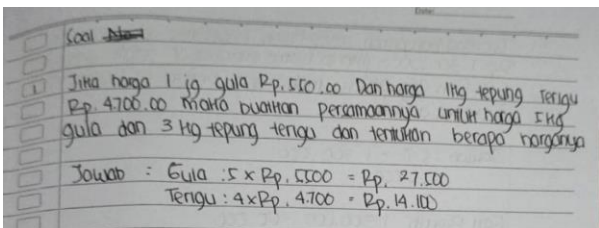 Date:
Soal
1 Jika harga 1 kg gula Rp. 550.00 Dan harga 1kg tepung Terigu
Rp. 4700.00 maka buatkan persamaannya untuk harga 5kg
gula dan 3 kg tepung terigu dan tentukan berapa harganya
Jawab : Gula : 5 x Rp. 5500 = Rp. 27.500
Terigu : 4 x Rp. 4.700 = Rp. 14.100